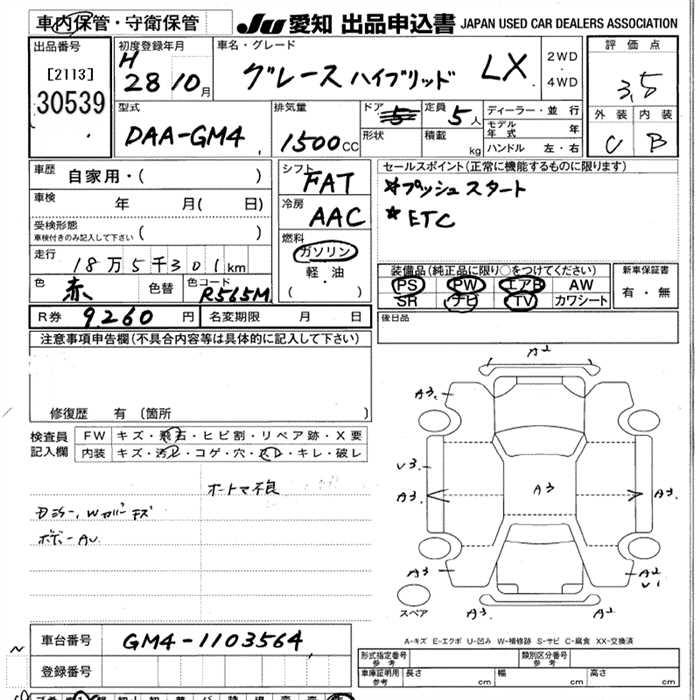 車内保管・守衛保管
JU 愛知 出品申込書 JAPAN USED CAR DEALERS ASSOCIATION
出品番号
[2113]
30539
初度登録年月
H
28 10月
車名・グレード
グレース ハイブリッド LX
2WD
・
4WD
評価点
3.5
外装 内装
C B
型式
DAA-GM4
排気量
1500cc
ドア
5
形状
定員
5人
積載
kg
ディーラー・並行
モデル年式 年
ハンドル 左・右
車歴 自家用・( )
車検 年 月( 日)
受検形態
車検付きのみ記入して下さい ( )
走行
18万5千301km
色 赤 色替
色コード R565M
シフト
FAT
冷房
AAC
燃料
ガソリン
・
軽・油
( ・ )
セールスポイント(正常に機能するものに限ります)
*プッシュスタート
*ETC
装備品(純正品に限り○をつけてください)
PS PW エアB AW
SR ナビ TV カワシート
新車保証書
有・無
R券 9260円 名変期限 月 日
後日品
注意事項申告欄(不具合内容等は具体的に記入して下さい)
修復歴 有(箇所 )
検査員
記入欄
FW キズ・飛石・ヒビ割・リペア跡・X要
内装 キズ・汚レ・コゲ・穴・スレ・キレ・破レ
オートマ不良
ボデーAU
A2
A3
V3
A3
A3
A3
A3
A2
V1
A3
A3
スペア
A-キズ E-エクボ U-凹み W-補修跡 S-サビ C-腐食 XX-交換済
車台番号 GM4-1103564
登録番号
形式指定番号
参考
類別区分番号
参考
車庫証明用
参考
長さ cm 幅 cm 高さ cm